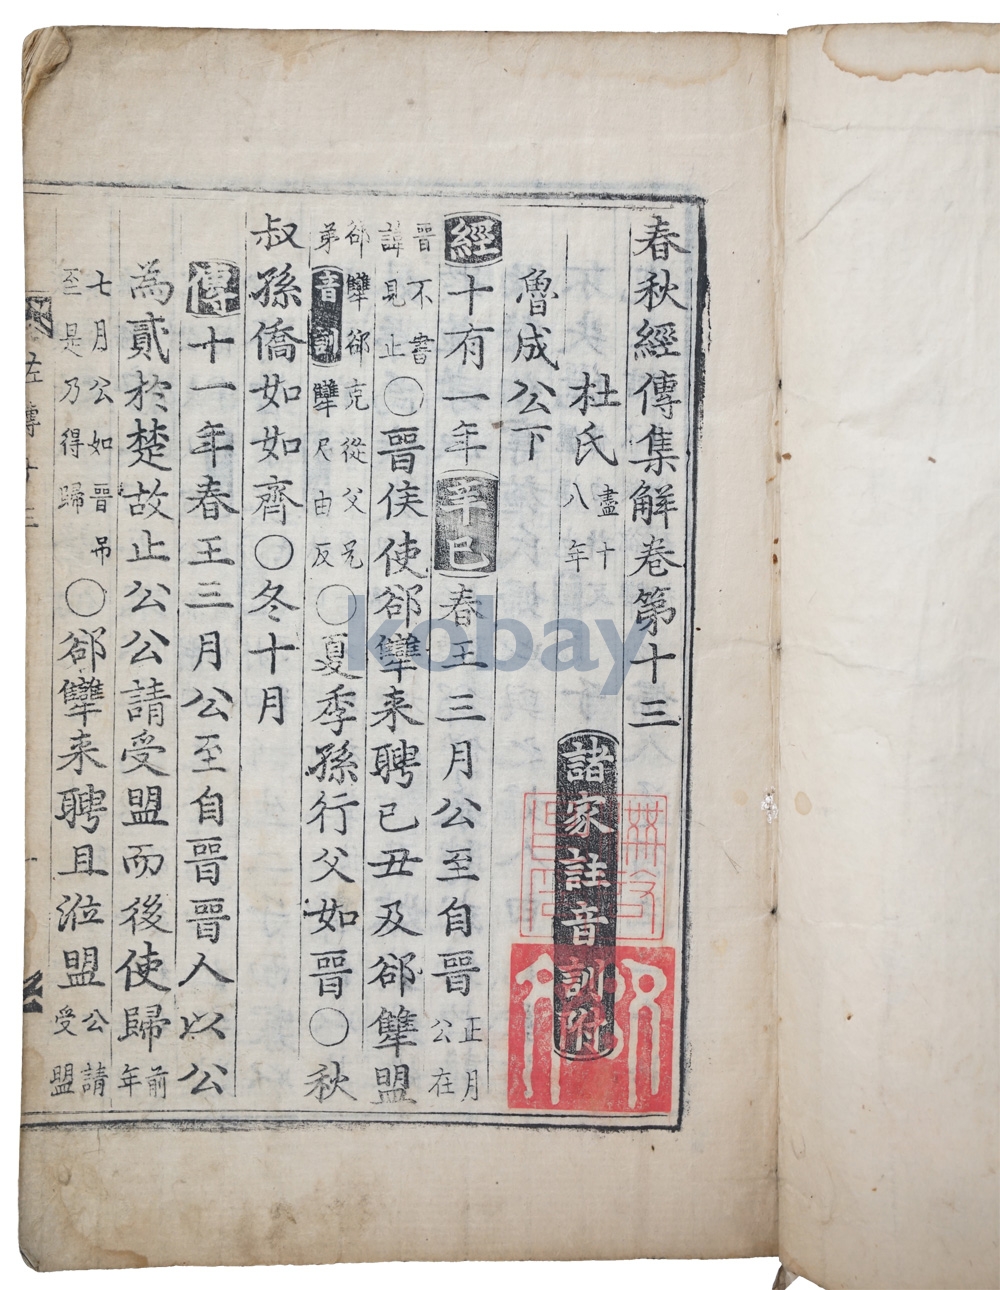 春秋經傳集解卷第十三
杜氏 盡十八年 諸家註音訓附
魯成公下
經十有一年辛巳春王三月公至自晉 正月公在
晉不書諱見止〇晉侯使郤犨来聘己丑及郤犨盟
郤犨郤克從父兄弟音訓犨尺由反〇夏季孫行父如晉〇秋
叔孫僑如如齊〇冬十月
傳十一年春王三月公至自晉晉人以公
為貳於楚故止公公請受盟而後使歸 前年
七月公如晉弔至是乃得歸〇郤犨来聘且涖盟 公請受盟
左傳十三
kobay